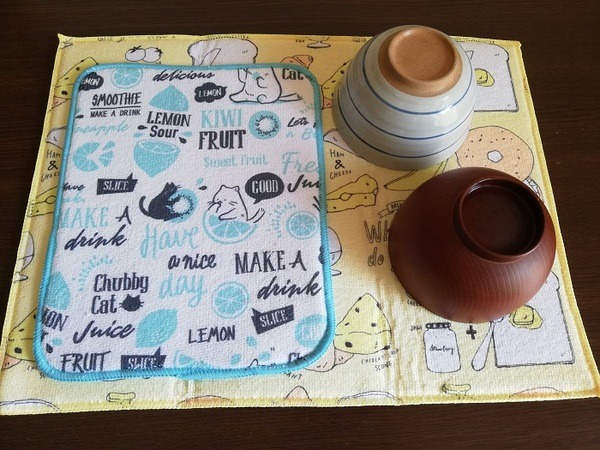 delicious
Cat
LEMON
SMOOTHIE
MAKE A DRINK
LEMON
Sour
KIWI
FRUIT
Let's
Sweet Fruit
Fre
Juic
SLICE
GOOD
MAKE A
drink
Have
a nice
day
MAKE A
drink
Chubby
Cat
Juice
LEMON
SLICE
FRUIT
SLICE
HAM
&
CHEESE
HAM
&
CHEESE
Wh
do
Strawberry
+